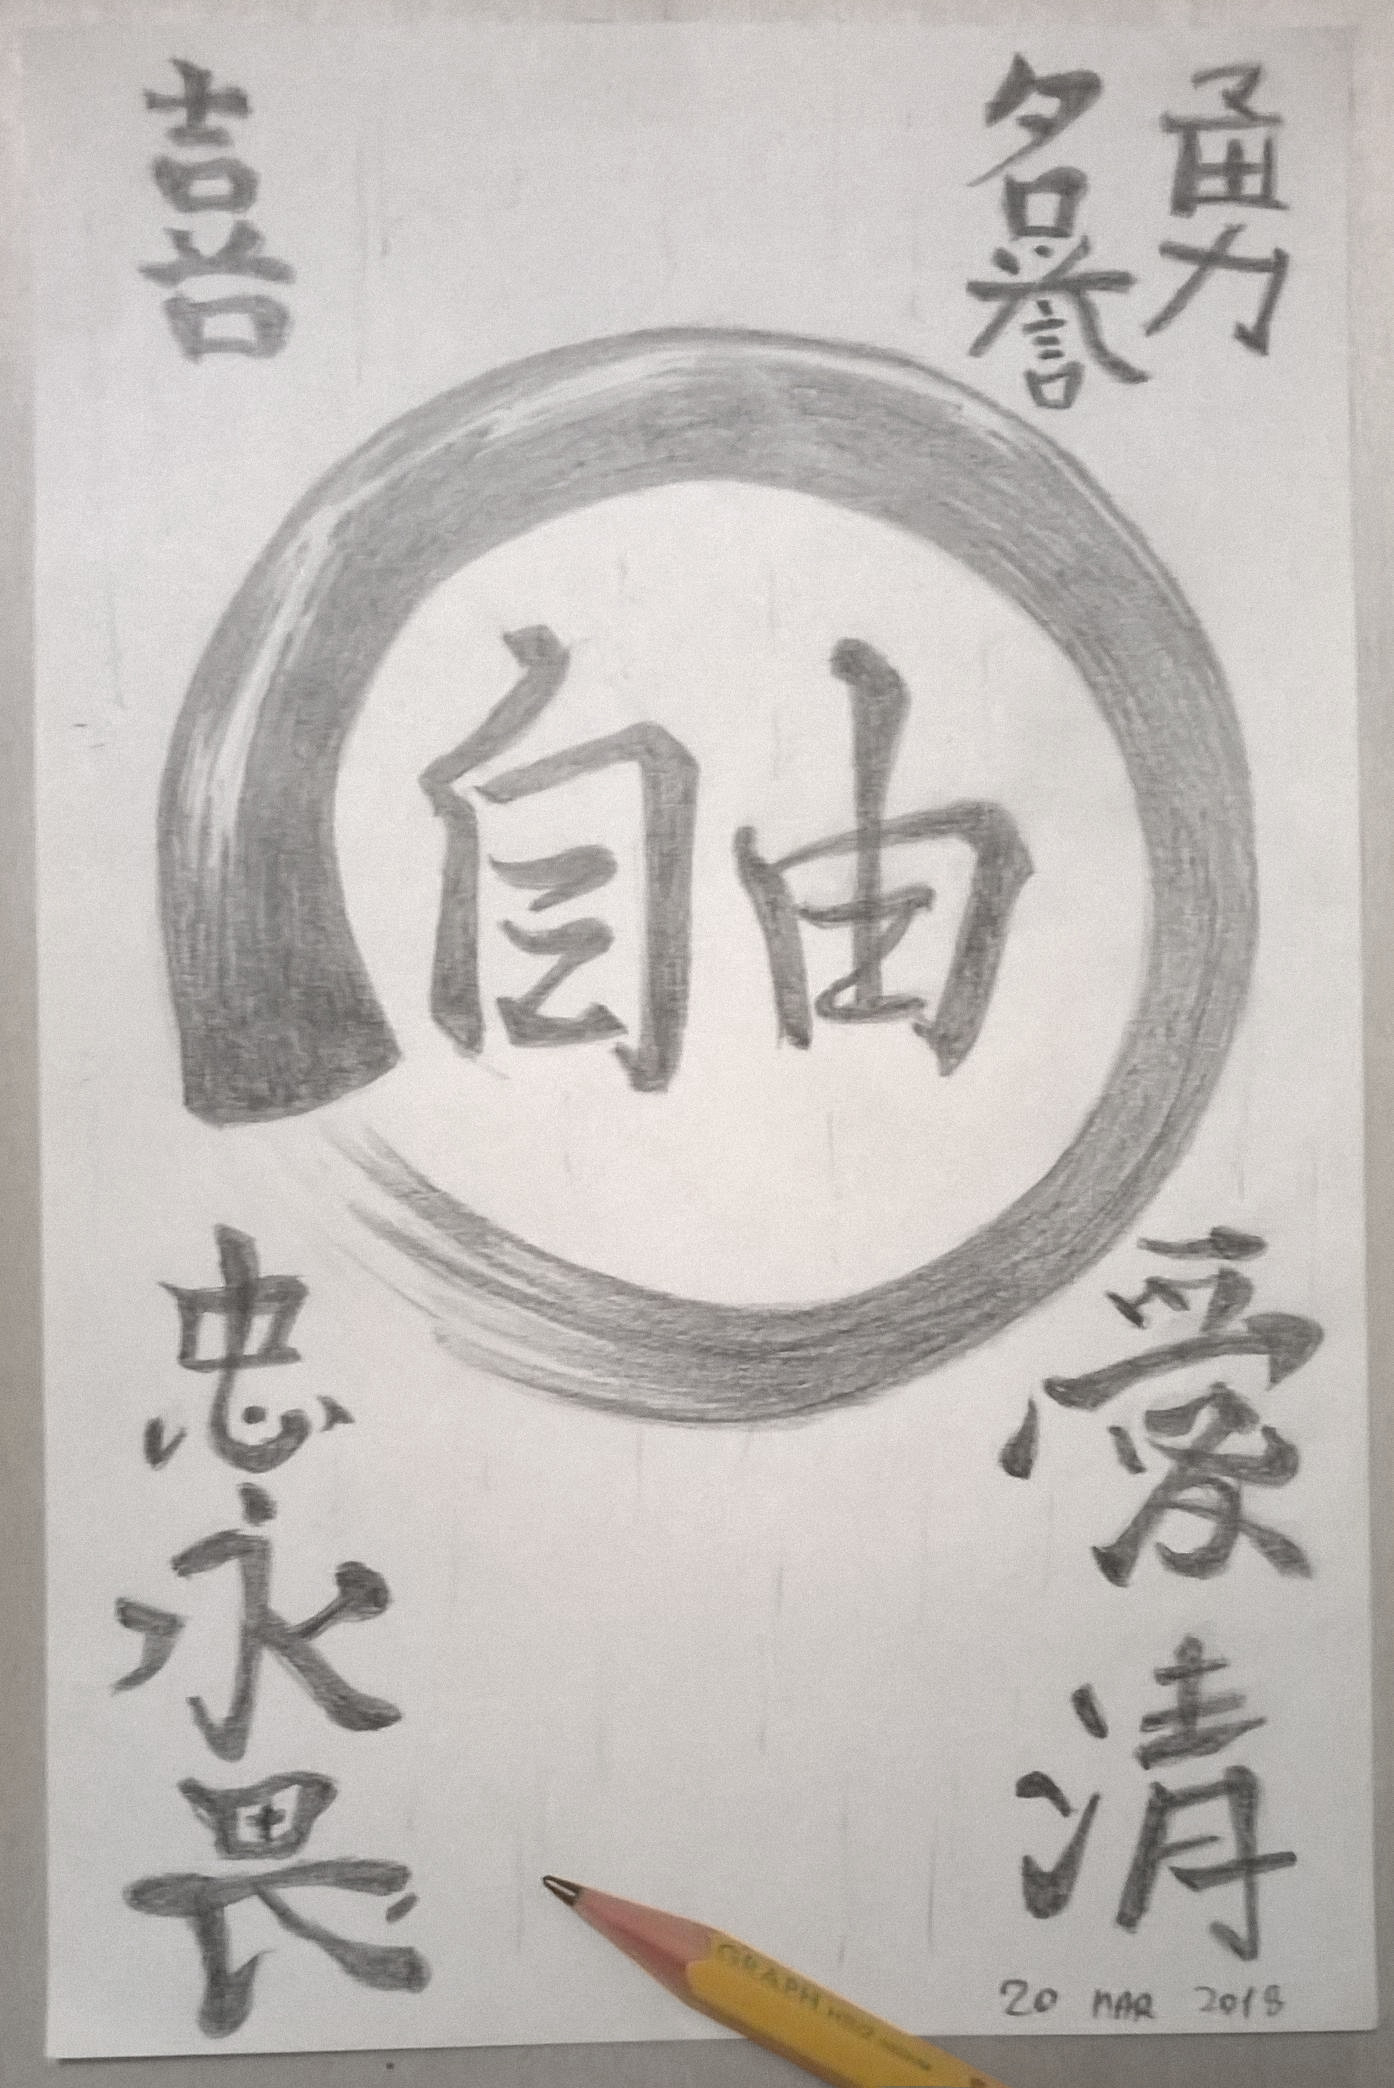 喜
名誉
勇
自由
忠
永
畏
愛
清
20 MAR 2018
GRAPH